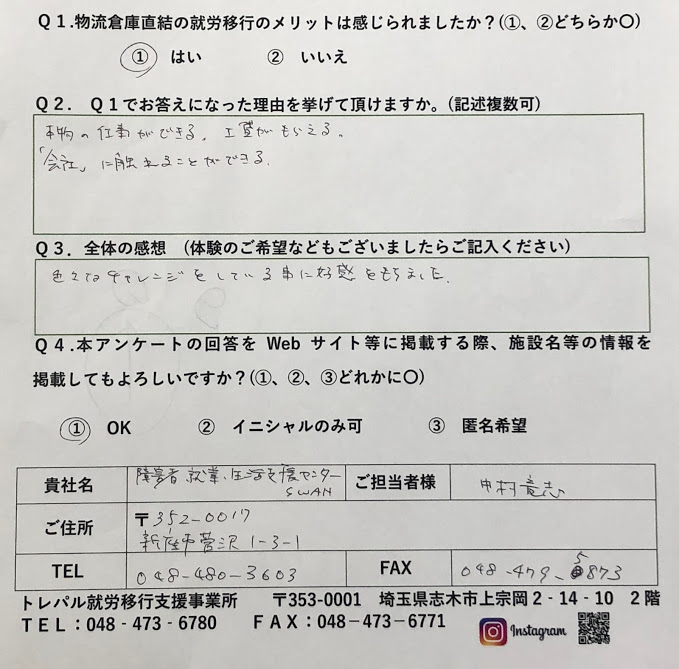 Q1.物流倉庫直結の就労移行のメリットは感じられましたか?(①、②どちらか〇)
① はい ② いいえ
Q2. Q1でお答えになった理由を挙げて頂けますか。(記述複数可)
本物の仕事ができる。工賃がもらえる。
「会社」に触れることができる。
Q3. 全体の感想 (体験のご希望などもございましたらご記入ください)
色々なチャレンジをしている事に好感をもちました。
Q4.本アンケートの回答を Web サイト等に掲載する際、施設名等の情報を
掲載してもよろしいですか?(①、②、③どれかに〇)
① OK ② イニシャルのみ可 ③ 匿名希望
貴社名 障害者就業・生活支援センター SWAN ご担当者様 中村竜志
ご住所 〒352-0017
新座市菅沢1-3-1
TEL 048-480-3603 FAX 048-479-5873
トレパル就労移行支援事業所 〒353-0001 埼玉県志木市上宗岡2-14-10 2階
TEL:048-473-6780 FAX:048-473-6771 Instagram